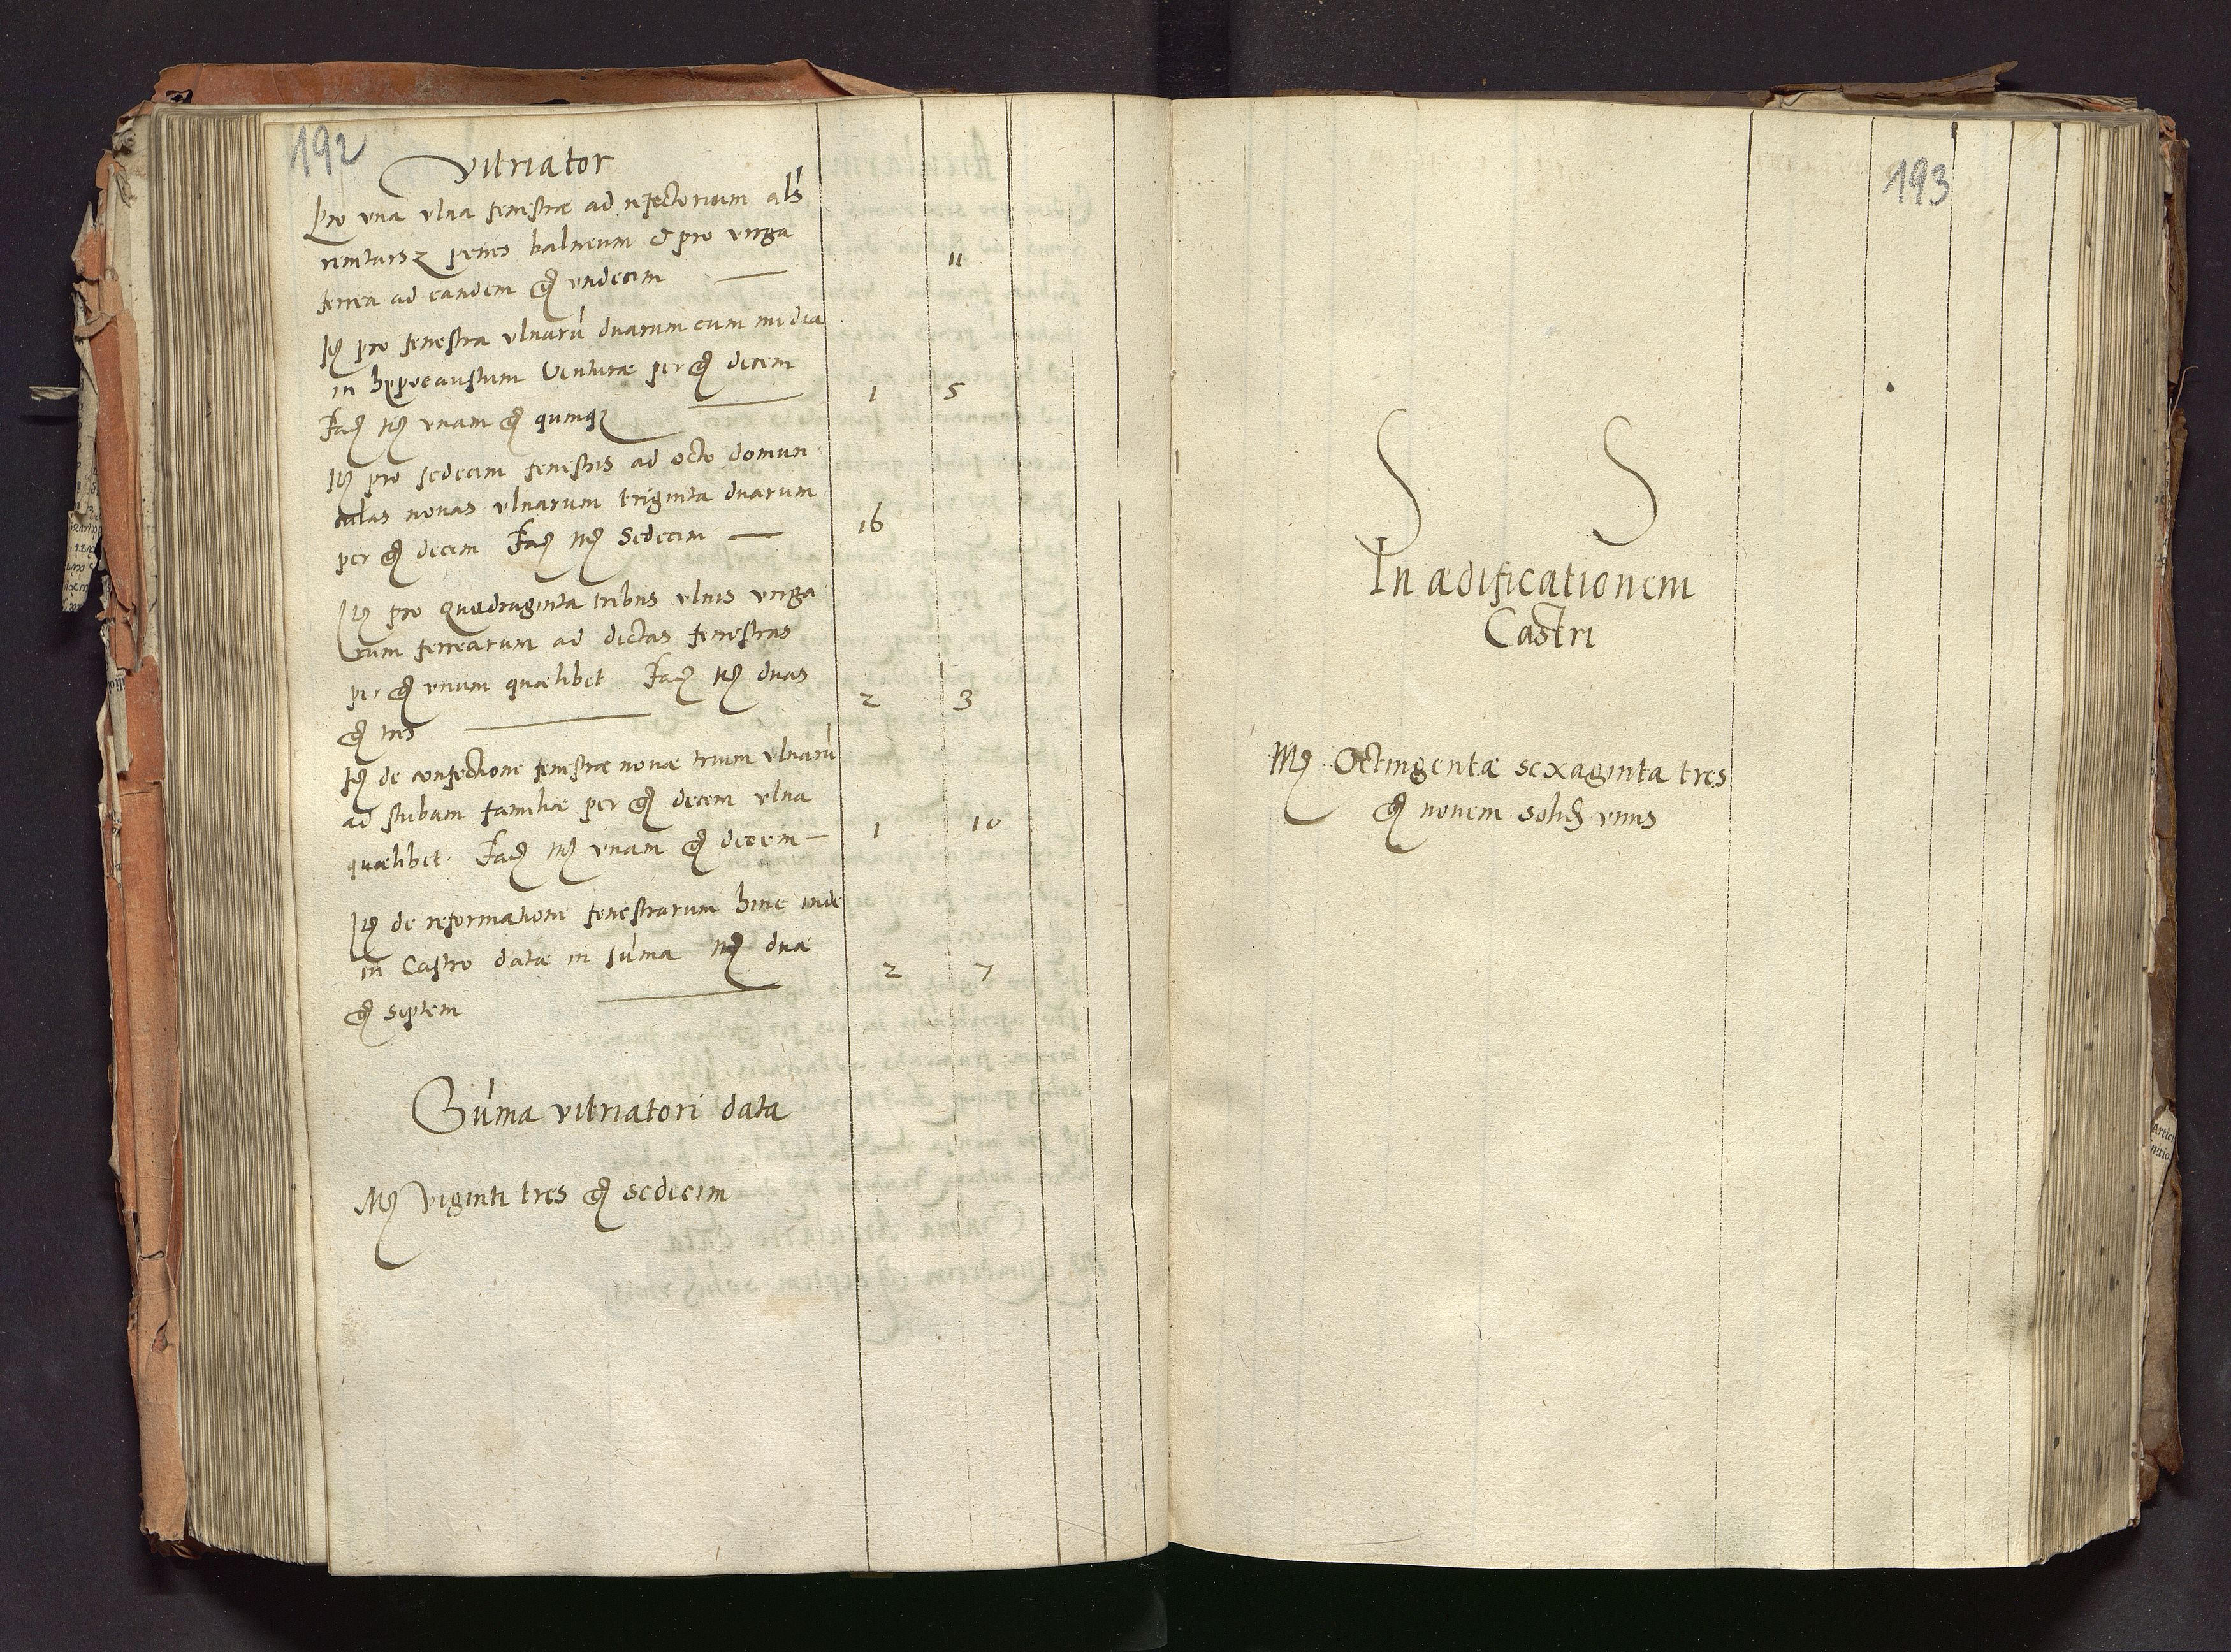 192
Vitriator
Pro vna vlna fenestræ ad refectorium als
penes balneum & pro virga
ferrea ad eandem gͦ vndecim — 11
Itͤ pro fenestra vlnarū duarum cum media
in hypocaustum Venturæ per gͦ decem
Faͨ mͬ vnam gͦ quinqꝫ — 1 5
Itͤ pro sedecim fenestris ad octo domun
culas nouas vlnarum triginta duarum
per gͦ decem Faͨ mͬ Sedecim — 16
Itͤ pro Quadraginta tribus vlnis virga
rum ferrearum ad dictas fenestras
per gͦ vnum quælibet Faͨ mͬ duas
gͦ tres — 2 3
Itͤ de confectione fenestræ nouæ trium vlnarū
ad stubam familiæ per gͦ decem vlna
quælibet. Faͨ mͬ vnam gͦ decem — 1 10
Itͤ de reformatione fenestrarum hinc inde
in Castro datæ in sūma mͬ duæ
gͦ septem — 2 7
Sūma vitriatori data
Mͬ Viginti tres gͦ sedecim
193
S S
In ædificationem
Castri
Mͬ Octingentæ sexaginta tres
gͦ nouem solid vnus